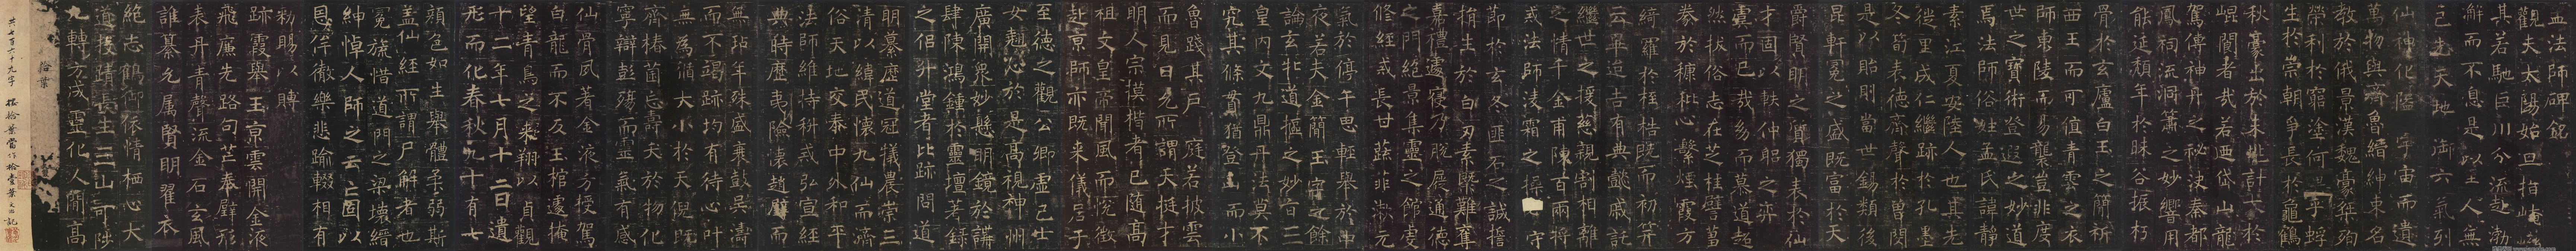 孟法師碑銘
觀夫太陽始旦指崦嵫
其若馳巨川分流趍渤
澥而不息是以至人無
己先天地御六氣列
仙神化陰宇宙而遺
萬物與齊魯縉紳束名
教於俄景漢魏豪桀殉
榮利於窮塗何乎蜉
生於崇朝爭長於龜鶴
秋豪出於未兆計大於
崐閬者哉若迺岱山龍
駕傳神丹之秘訣秦都
鳳祠流洞簫之妙響用
能延頹年於昧谷振朽
骨於玄廬白玉之簡祈
西王而可值青雲之衣
師東陵而易襲豈非度
世之寶術登遐之妙道
焉法師俗姓孟氏諱靜
素江夏安陸人也其先
徙里成仁繼跡於孔墨
冬筍表德齊聲於曾閔
是以貽則當世錫類後
昆軒冕之盛既富於天
爵賢明之質獨表於仙
才固以軼仲躬之弈
霓而已哉多而慕道超
然拔俗志在芝桂譬菖
豢於糠秕心繫煙霞方
綺羅於桎梏既而初笄
云畢迨吉有典懿戚託
繼世之援慈親割相離
之情千金甫陳百兩將
戒法師凌霜之操
節於玄冬匪石之誠擔
捐生於白刃素槩難奪
嘉禮遽寢乃脫屣通德
之門絕景集靈之館虔
修經戒長甘蔬菲漱元
氣於停午思輕舉於中
夜若夫金簡玉字之餘
論玄牝道樞之妙旨三
皇内文九鼎丹法莫不
究其條貫猶登山而小
魯踐其戶庭若披雲
而見日允所謂天挺才
明人宗摸楷者已隨高
祖文皇帝聞風而悅徵
赴京師亦既来儀居于
至德之觀公卿虛己士
女趨沁於是高視神州
廣開衆妙懸明鏡於講
肆陳鴻鍾於靈壇著錄
之侶升堂者比跡問道
朋慕歷道冠犧農崇三
清以緯民懷九仙而濟
俗天地交泰中外和平
法師維持科戒弘宣經
典時歷夷險懷趙璧而
無玷年殊盛衰鼓吳濤
而不竭跡均有待心叶
無為循大小於天倪既
齊椿菌忘壽夭於物化
寧辯彭殤而靈氣有感
仙骨夙著金液方授駕
白龍而不反玉棺遽掩
望青鳥之来翔以貞觀
十二年七月十二日遺
形而化春秋九十有七
顏色如生舉體柔弱斯
蓋仙經所謂尸解者也
冕旒惜道門之梁壞縉
紳悼人師之云亡固以
恩侔徹樂悲踰輟相有
勑賜以賻
跡霞舉玉京雲開金液
飛廉先路句芒奉璧形
表丹青聲流金石玄風
誰纂允屬賢明翟衣
絕志鶴御依情栖心大
道投跡長生三山可陟
九轉方成靈化人間高
拾葉
共七百六十九字 據拾葉當作拾壹葉 文田記